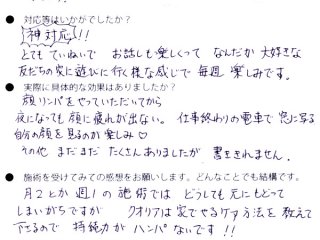 ● 対応等はいかがでしたか？
神対応!!
とても ていねいで お話しも楽しくって なんだか 大好きな
友だちの家に遊びに行く様な感じで 毎週 楽しみです。
● 実際に具体的な効果はありましたか？
顔リンパをやっていただいてから
夜になっても 顔に疲れが出ない。 仕事終わりの電車で 窓に写る
自分の顔を見るのが楽しみ♡
その他 まだまだ たくさんありましたが 書ききれません。
● 施術を受けてみての感想をお願いします。どんなことでも結構です。
月2とか 週1の 施術では どうしても 元にもどって
しまいがちですが クオリアは家でやるケア方法を教えて
下さるので 持続力が ハンパないです!!